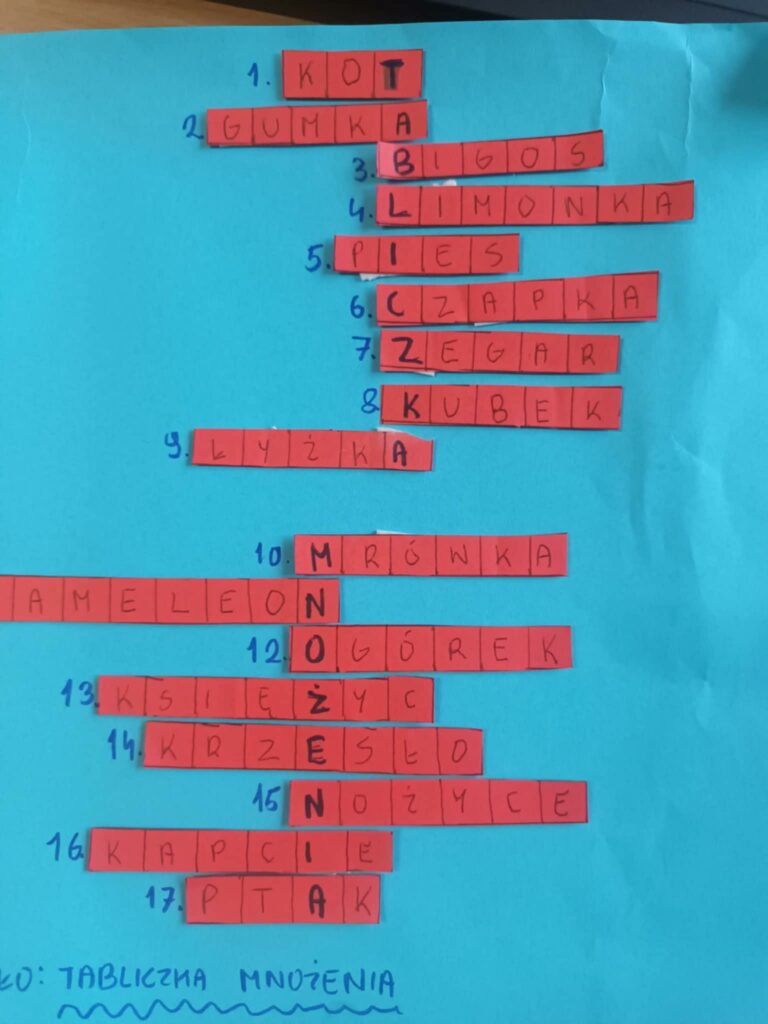 1. KOT
2 GUMKA
3. BIGOS
4. LIMONKA
5. PIES
6. CZAPKA
7. ZEGAR
8. KUBEK
9. ŁYŻKA
10. MRÓWKA
AMELEON
12. OGÓREK
13. KSIĘŻYC
14. KRZESŁO
15 NOŻYCE
16. KAPCIE
17. PTAK
ŁO: TABLICZKA MNOŻENIA